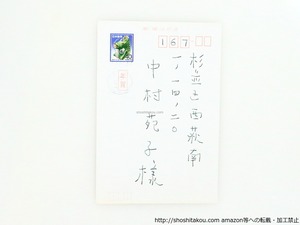 167
杉並区西荻南
一ノ一四ノ二〇
中村苑子様
http://shoshitakou.com amazon等への転載・加工禁止